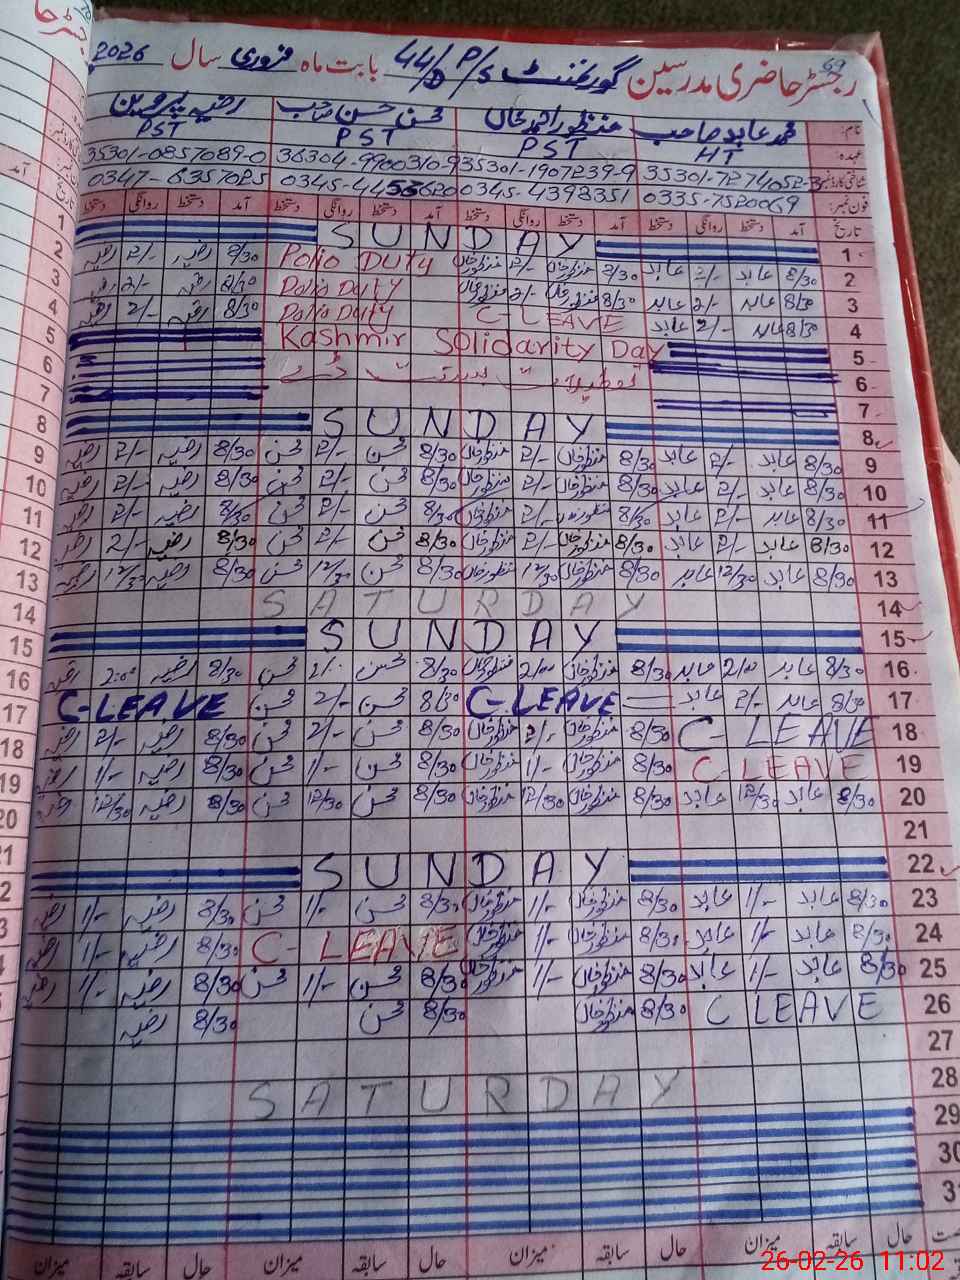 69
رجسٹر حاضری مدرسین گورنمنٹ P/S 44/D بابت ماہ فروری سال 2026
نام: محمد عابد صاحب منظور احمد خاں محسن حسن صاحب رضیہ پروین
عہدہ: HT PST PST PST
شناختی کارڈ نمبر: 35301-1907239-9 36304-9900310-9 35301-0857089-0
فون نمبر: 0335-7520069 0345-4398351 0347-6357025
تاریخ آمد دستخط روانگی دستخط آمد دستخط روانگی دستخط آمد دستخط روانگی دستخط آمد دستخط روانگی دستخط
1 SUNDAY
2 8/30 عابد 2/- عابد 8/30 منظور خاں 2/- منظور خاں Polio DUTY 8/30 رضیہ 2/- رضیہ
3 8/30 عابد 2/- عابد 8/30 منظور خاں 2/- منظور خاں Polio Duty 8/30 رضیہ 2/- رضیہ
4 8/30 عابد 2/- عابد C-LEAVE Polio Duty 8/30 رضیہ 2/- رضیہ
5 Kashmir Solidarity Day
6
7
8 SUNDAY
9 8/30 عابد 2/- عابد 8/30 منظور خاں 2/- منظور خاں 8/30 محسن 2/- محسن 8/30 رضیہ 2/- رضیہ
10 8/30 عابد 2/- عابد 8/30 منظور خاں 2/- منظور خاں 8/30 محسن 2/- محسن 8/30 رضیہ 2/- رضیہ
11 8/30 عابد 2/- عابد 8/30 منظور خاں 2/- منظور خاں 8/30 محسن 2/- محسن 8/30 رضیہ 2/- رضیہ
12 8/30 عابد 2/- عابد 8/30 منظور خاں 2/- منظور خاں 8/30 محسن 2/- محسن 8/30 رضیہ 2/- رضیہ
13 8/30 عابد 12/30 عابد 8/30 منظور خاں 12/30 منظور خاں 8/30 محسن 12/30 محسن 8/30 رضیہ 12/30 رضیہ
14 SATURDAY
15 SUNDAY
16 8/30 عابد 2/00 عابد 8/30 منظور خاں 2/00 منظور خاں 8/30 محسن محسن 8/30 رضیہ 2:00 رضیہ
17 8/30 عابد 2/- عابد C-LEAVE 8/30 محسن 2/- محسن C-LEAVE
18 C-LEAVE 8/30 منظور خاں 2/- منظور خاں 8/30 محسن 2/- محسن 8/30 رضیہ 2/- رضیہ
19 C-LEAVE 8/30 منظور خاں 1/- منظور خاں 8/30 محسن 1/- محسن 8/30 رضیہ 1/- رضیہ
20 8/30 عابد 12/30 عابد 8/30 منظور خاں 12/30 منظور خاں 8/30 محسن 12/30 محسن 8/30 رضیہ 12/30 رضیہ
21
22 SUNDAY
23 8/30 عابد 1/- عابد 8/30 منظور خاں 1/- منظور خاں 8/30 محسن 1/- محسن 8/30 رضیہ 1/- رضیہ
24 8/30 عابد 1/- عابد 8/30 منظور خاں 1/- منظور خاں C-LEAVE 8/30 رضیہ 1/- رضیہ
25 8/30 عابد 1/- عابد 8/30 منظور خاں 1/- منظور خاں 8/30 محسن 1/- محسن 8/30 رضیہ 1/- رضیہ
26 C LEAVE 8/30 منظور خاں 8/30 محسن 8/30 رضیہ
27
28 SATURDAY
29
30
31
حال سابقہ میزان حال سابقہ میزان حال سابقہ میزان حال سابقہ میزان
26-02-26 11:02